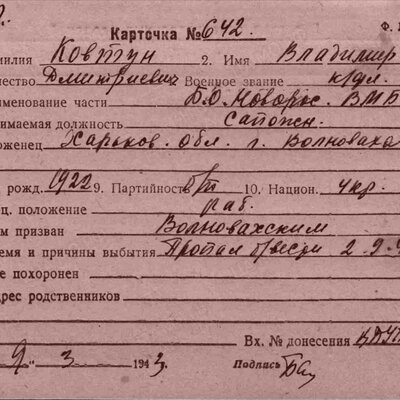 Карточка № 642. Ф.
милия Ковтун 2. Имя Владимир
чество Дмитриевич Военное звание к/фл.
именование части Б.О. Новорос. ВМБ
нимаемая должность сапожн.
оженец Харьков. Обл. г. Волноваха
рожд. 1922 9. Партийность б/п 10. Национ. укр.
ц. положение раб.
м призван Волновахским
емя и причины выбытия Пропал б/вести 2.9.4
е похоронен
дрес родственников
Вх. № донесения
9 " 3 1943 Подпись